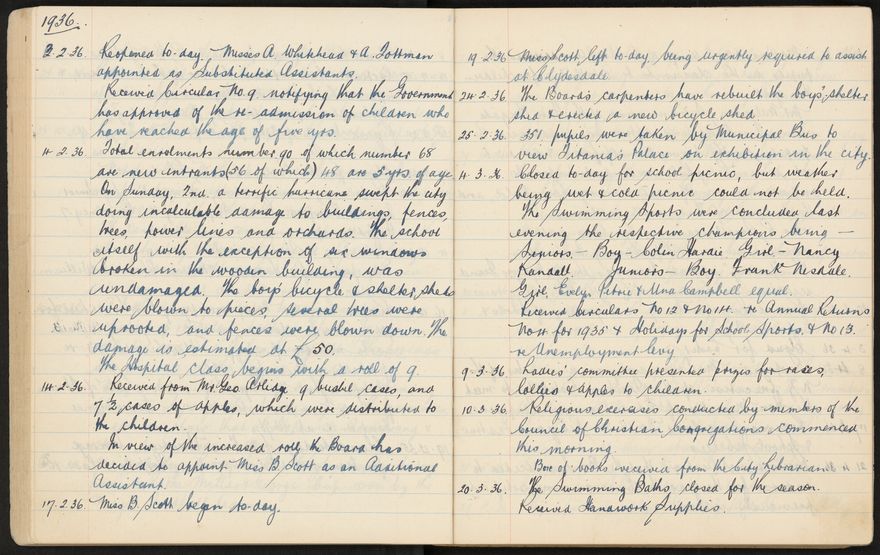 1936.
3.2.36. Reopened to-day. Misses A. Whitehead & A. Tottman
appointed as Substituted Assistants.
Received Circular No. 9 notifying that the Government
has approved of the re-admission of children who
have reached the age of five yrs.
4.2.36. Total enrolments number 90 of which number 68
are new intrants (56 of which) 48 are 5 yrs. of age
On Sunday, 2nd. a terrific hurricane swept the city
doing incalculable damage to buildings, fences,
trees, power lines and orchards. The school
itself with the exception of six windows
broken in the wooden building, was
undamaged. The boys' bicycle & shelter sheds
were blown to pieces, several trees were
uprooted, and fences were blown down. The
damage is estimated at £50.
The Hospital class begins with a roll of 9.
14.2.36. Received from Mr Geo. Arlidge 9 bushel cases, and
7½ cases of apples, which were distributed to
the children.
In view of the increased roll, the Board has
decided to appoint Miss B. Scott as an Additional
Assistant.
17.2.36. Miss B. Scott began to-day.
19.2.36 Miss Scott left to-day, being urgently required to assist
at Clydesdale.
24.2.36 The Board's carpenters have rebuilt the boys' shelter
shed & erected a new bicycle shed.
25.2.36. 351 pupils were taken by Municipal Bus to
view Titania's Palace on exhibition in the city.
4.3.36. Closed to-day for school picnic, but weather
being wet & cold picnic could not be held.
The Swimming Sports were concluded last
evening the respective champions being —
Seniors – Boy – Colin Hardie Girl – Nancy
Randall. Juniors – Boy. Frank Nesdale.
Girl. Evelyn Petrie & Una Campbell equal.
Received Circulars No 12 & No 14. re Annual Returns
No 4 for 1935 & Holidays for School Sports & No 13.
re Unemployment Levy
9.3.36. Ladies' committee presented prizes for races,
lollies & apples to children.
10.3.36. Religious exercises conducted by members of the
Council of Christian Congregations commenced
this morning.
Box of books received from the City Librarian.
20.3.36. The Swimming Baths closed for the season.
Received Handwork Supplies.